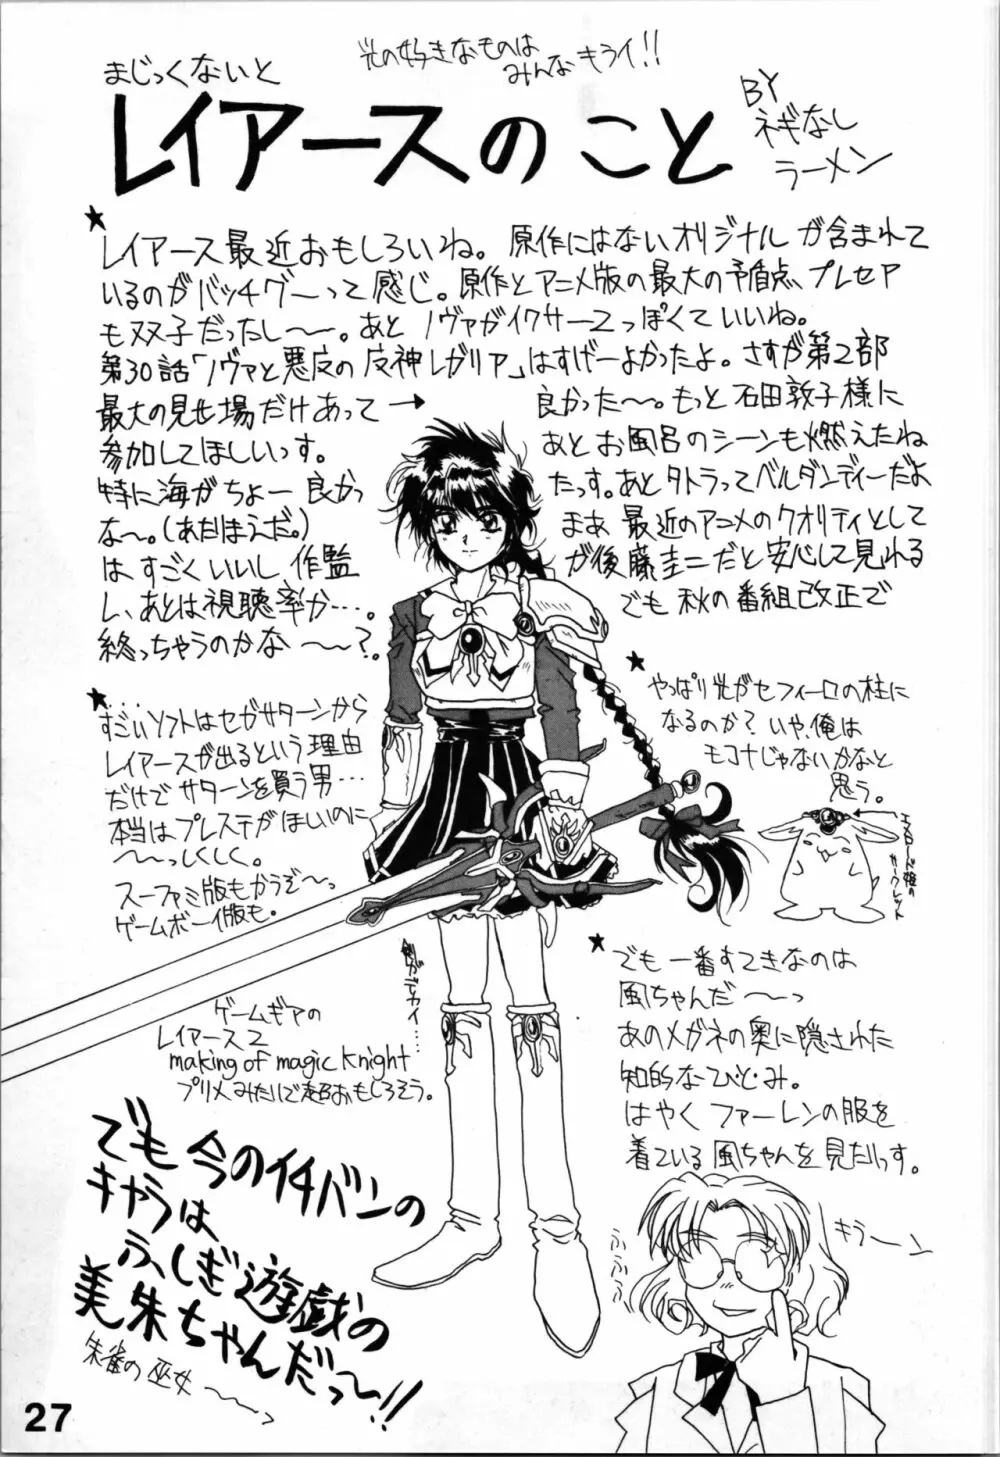 光の好きなものは
みんなキライ!!
まじっくないと
レイアースのこと
BY
ネギなし
ラーメン
★
レイアース最近おもしろいね。原作にはないオリジナルが含まれて
いるのがバッチグーって感じ。原作とアニメ版の最大の矛盾点、プレセア
も双子だったし〜〜。あとノヴァがイクサー2っぽくていいね。
第30話「ノヴァと悪夜の反神レガリア」はすげーよかったよ。さすが第2部
最大の見せ場だけあって→良かった〜〜。もっと石田敦子様に
参加してほしいっす。あとお風呂のシーンも燃えたね
特に海がちょー良かったっす。あとタトラってベルダンディーだよ
な〜。(あたりまえだ。)まあ最近のアニメのクオリティとして
はすごくいいし作監が後藤圭二だと安心して見れる
し、あとは視聴率か…。でも秋の番組改正で
終っちゃうのかな〜〜?。
★……
すごいソフトはセガサターンから
レイアースが出るという理由
だけでサターンを買う男…
本当はプレステがほしいのに
〜〜っしくしく。
スーファミ版もかうぞ〜っ
ゲームボーイ版も。
★
やっぱり光がセフィーロの柱に
なるのか?いや、俺は
モコナじゃないかなと
思う。
エメロード姫の
サークレット
剣がデカイ…
ゲームギアの
レイアース2
making of magic knight
プリメみたいで超おもしろそう。
★
でも一番すてきなのは
風ちゃんだ〜〜っ
あのメガネの奥に隠された
知的なひとみ。
はやくファーレンの服を
着ている風ちゃんを見たいっす。
キラーン
ふふふ
でも今のイチバンの
キャラは
ふしぎ遊戯の
美朱ちゃんだっ〜!!
朱雀の巫女〜〜っ
27